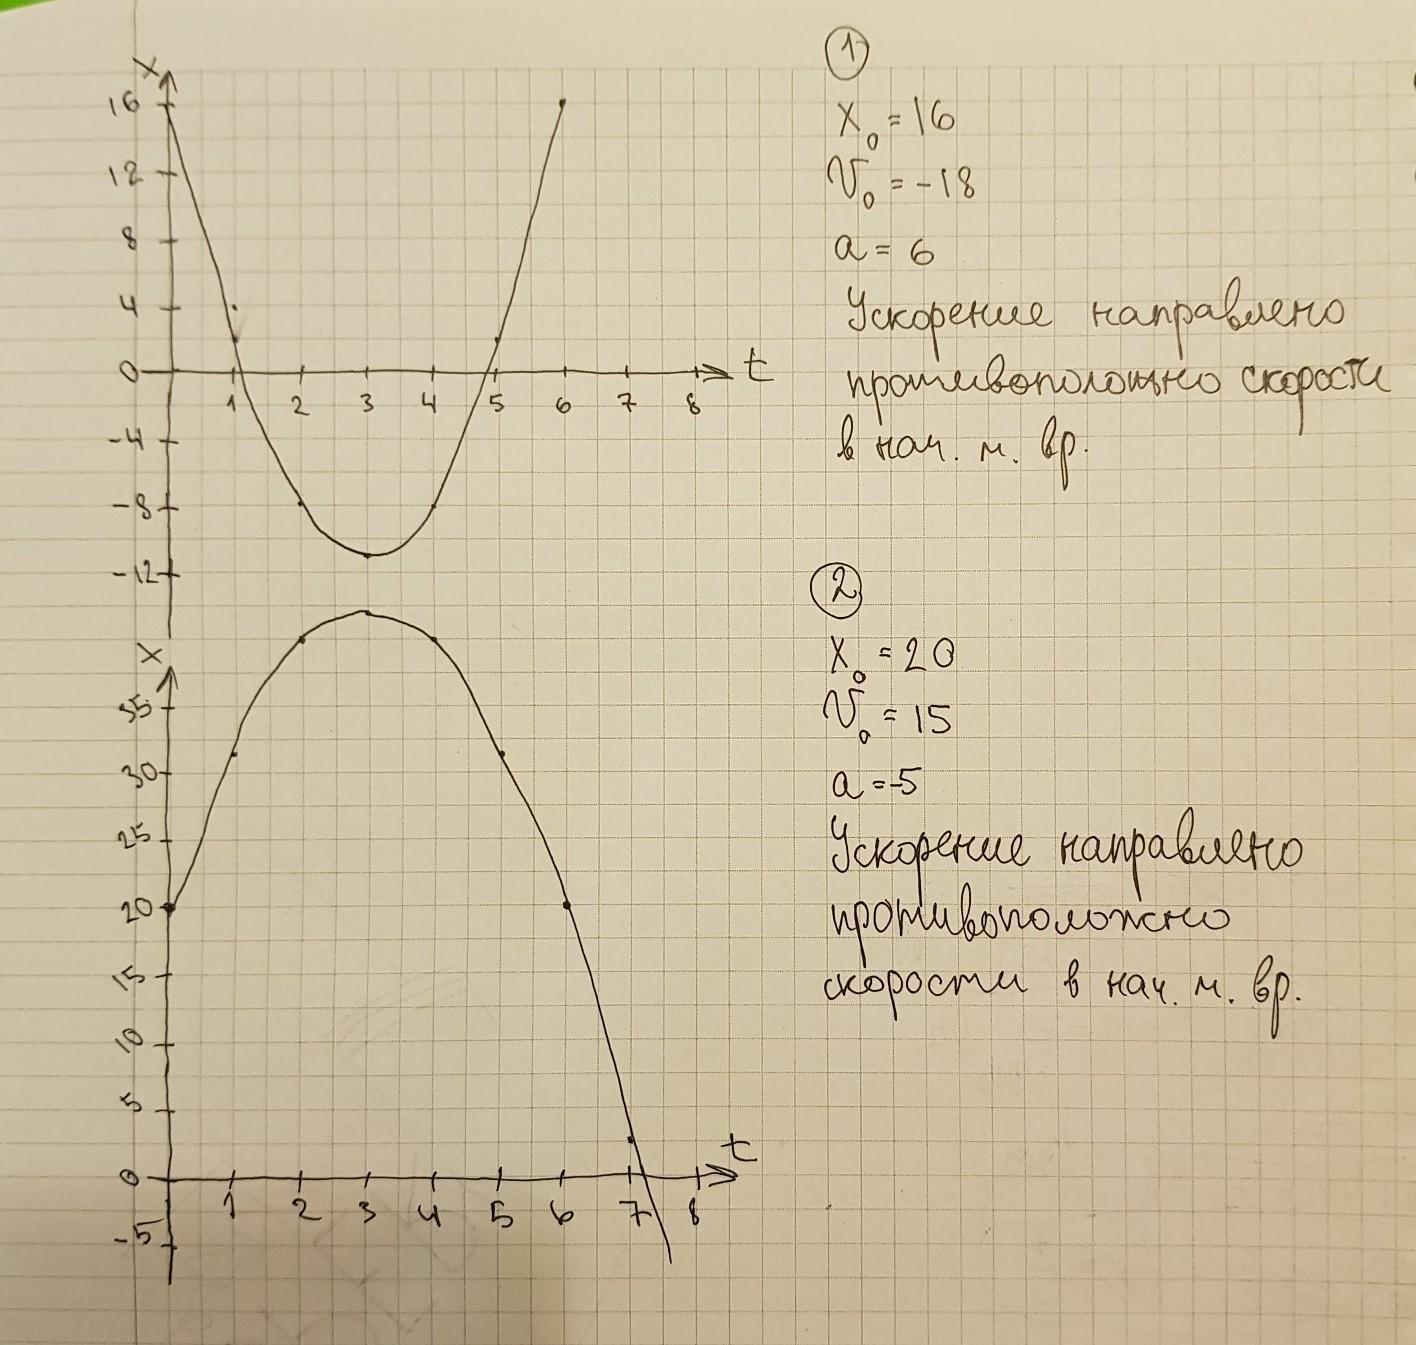 x
16
12
8
4
0
-4
-8
-12
1 2 3 4 5 6 7 8
t
①
x₀ = 16
v₀ = -18
a = 6
Ускорение направлено
противоположно скорости
в нач. м. вр.
x
35
30
25
20
15
10
5
0
-5
1 2 3 4 5 6 7 8
t
②
x₀ = 20
v₀ = 15
a = -5
Ускорение направлено
противоположно
скорости в нач. м. вр.